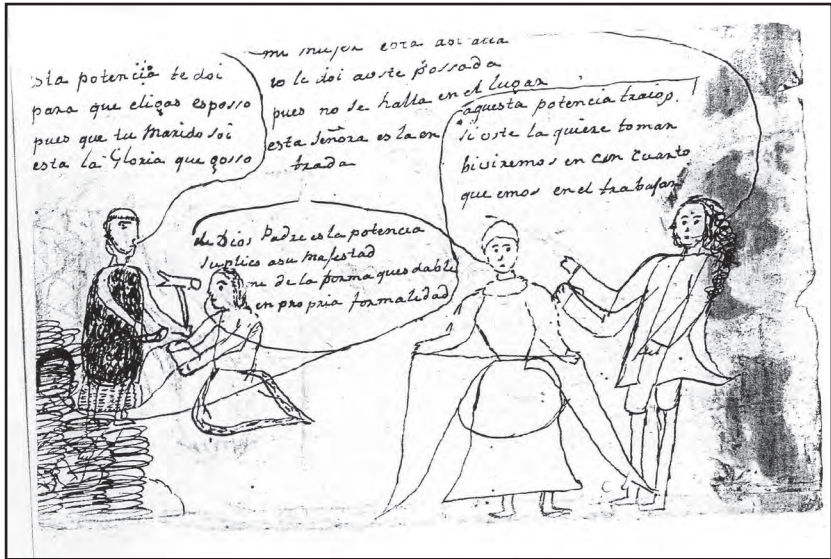 sta potencia te doi
para que eligas esposso
pues que tu Marido soi
esta la Gloria que gosso
mi mujer esta
io le doi a oste possada
pues no se halla en el lugar
esta señora es la en
trada
aquesta potencia traigo
si oste la quiere tomar
biviremos en con cuanto
que emos en el trabajar
de Dios Padre es la potencia
suplico a su magestad
de la forma ques dable
en propria formalidad